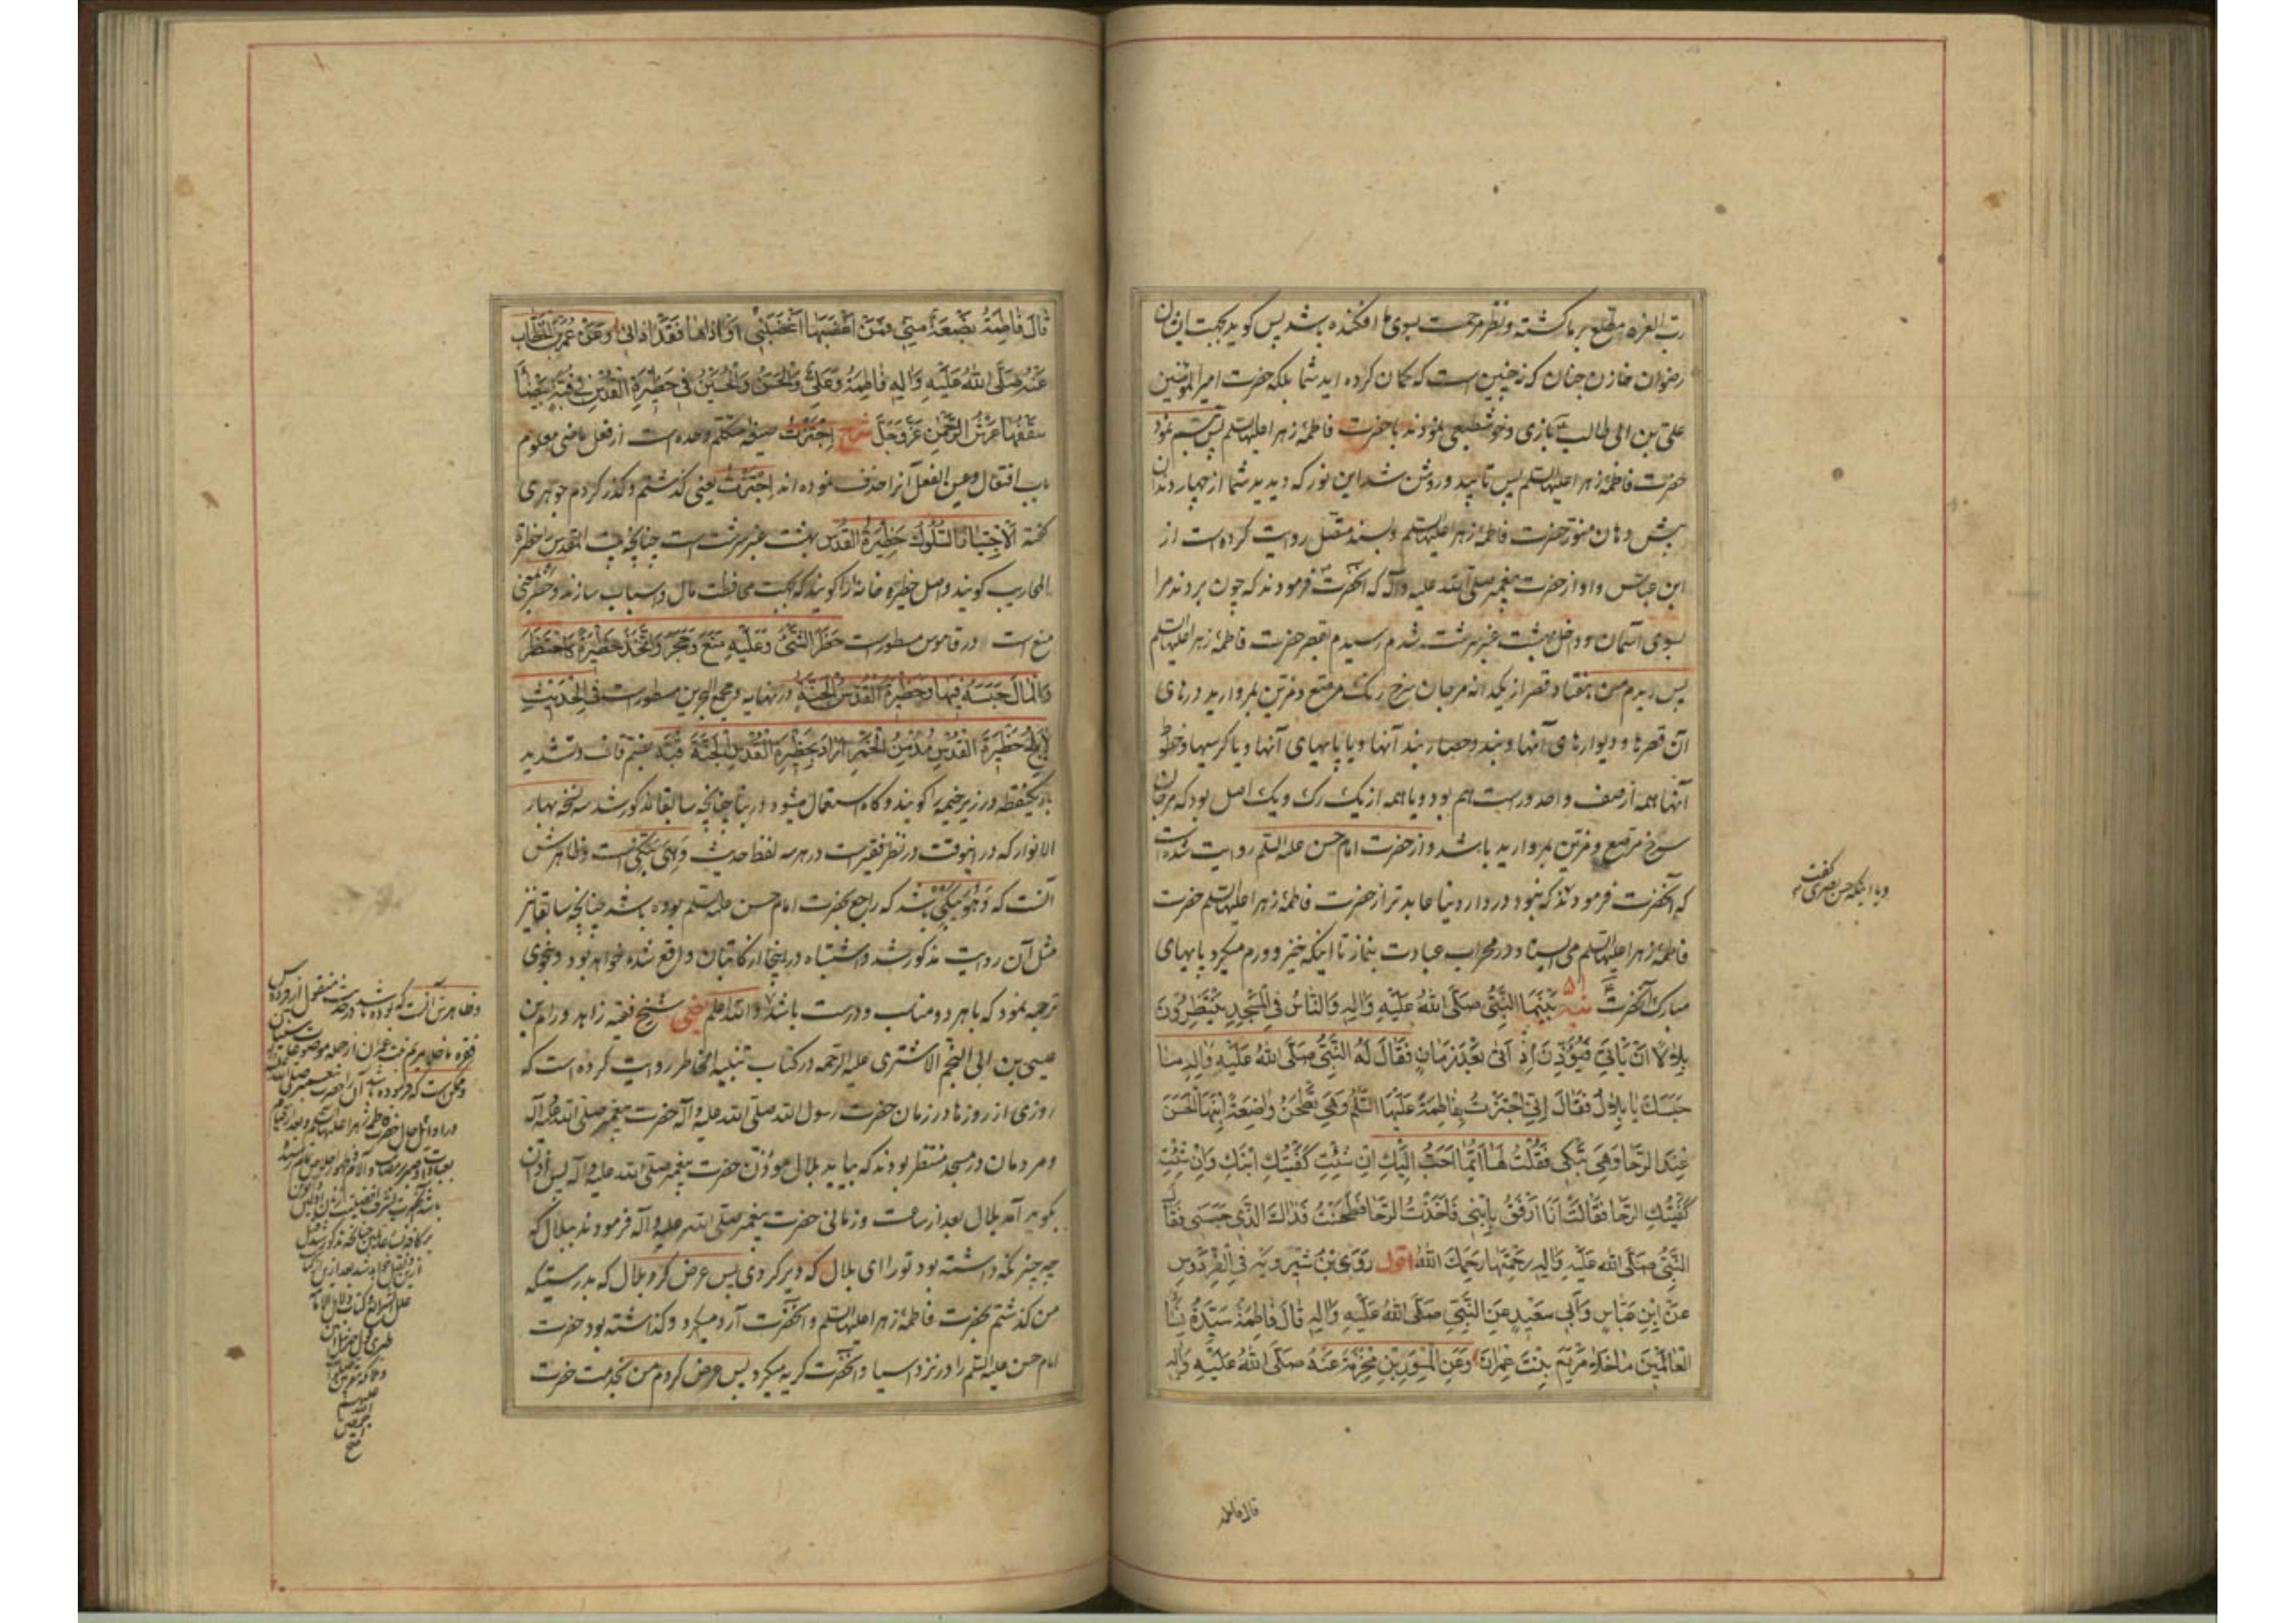 رب العزه مطلع بر ما گشته و نظر مرحمت بسوی ما افکنده باشد پس کوید بجهت ایشان
رضوان خازن جنان که نه چنین است که گمان کرده اید شما بلکه حضرت امیرالمؤمنین
علی بن ابی طالب بازی و خوشطبعی نمودند با حضرت فاطمهٔ زهرا علیها السلم پس تبسم نمود
حضرت فاطمهٔ زهرا علیها السلم پس تابید و روشن شد این نور که دیدید شما از چهار دندان
پیش دهان منور حضرت فاطمهٔ زهرا علیها السلم و بسند متصل روایت کرده است از
ابن عباس و او از حضرت پیغمبر صلی الله علیه و آله که آنحضرت فرمودند که چون بردند مرا
بسوی آسمان و داخل بهشت عنبر سرشت شدم رسیدم بقصر حضرت فاطمهٔ زهرا علیها السلم
پس دیدم من هفتاد قصر از یکدانه مرجان سرخ رنک مرصع و مزین بمروارید درهای
آن قصرها و دیوارهای آنها و بند و حصار بند آنها و یا پایهای آنها و یا کرسیها و خطوط
آنها همه از صف واحد و راست هم بود و یا همه از یک رک و یک اصل بود که مرجان
سرخ مرصع و مزین بمروارید باشد و از حضرت امام حسن علیه السلم روایت شده است
که آنحضرت فرمودند که نبود در دار دنیا عابدتر از حضرت فاطمهٔ زهرا علیها السلم حضرت
فاطمهٔ زهرا علیها السلم می ایستاد در محراب عبادت بنماز تا اینکه خیز و ورم میکرد پایهای
مبارک آنحضرت تنبیه بَیْنَمَا النَّبِیُّ صَلَّی اللهُ عَلَیْهِ وَالِهِ وَالنَّاسُ فِی الْمَسْجِدِ یَنْتَظِرُونَ
بِلالًا اَنْ یَاْتِیَ فَیُؤَذِّنَ اِذْ اَتٰی بَعْدَ زَمَانٍ فَقَالَ لَهُ النَّبِیُّ صَلَّی اللهُ عَلَیْهِ وَالِهِ مَا
حَبَسَكَ یَا بِلالُ فَقَالَ اِنِّی اجْتَزْتُ بِفَاطِمَةَ عَلَیْهَا السَّلَمُ وَهِیَ تَطْحَنُ وَاضِعَةً اِبْنَهَا الْحَسَنَ
عِنْدَ الرَّحَا وَهِیَ تَبْکِی فَقُلْتُ لَهَا اَیُّمَا اَحَبُّ اِلَیْكِ اِنْ شِئْتِ کَفَیْتُكِ ابْنَكِ وَاِنْ شِئْتِ
کَفَیْتُكِ الرَّحَا فَقَالَتْ اَنَا اَرْفَقُ بِابْنِی فَاَخَذْتُ الرَّحَا فَطَحَنْتُ فَذَاكَ الَّذِی حَبَسَنِی فَقَالَ
النَّبِیُّ صَلَّی اللهُ عَلَیْهِ وَالِهِ رَحِمْتَهَا رَحِمَكَ اللهُ اقول رَوَی بْنُ شِیرَوَیْهِ فِی الْفِرْدَوْسِ
عَنْ اِبْنِ عَبَّاسٍ وَاَبِی سَعِیدٍ عَنِ النَّبِیِّ صَلَّی اللهُ عَلَیْهِ وَالِهِ قَالَ فَاطِمَةُ سَیِّدَةُ نِسَاءِ
الْعَالَمِینَ مَا خَلَا مَرْیَمَ بِنْتَ عِمْرَانَ وَعَنِ الْمِسْوَرِ بْنِ مَخْرَمَةَ عَنْهُ صَلَّی اللهُ عَلَیْهِ وَالِهِ
و یا اینکه حسن بصری گفت
قال فاطمة
قَالَ فَاطِمَةُ بَضْعَةٌ مِنِّی فَمَنْ اَغْضَبَهَا اَغْضَبَنِی اَوْ اٰذَاهَا فَقَدْ اٰذَانِی وَعَنْ عُمَرَ بْنِ الْخَطَّابِ
عَنْهُ صَلَّی اللهُ عَلَیْهِ وَالِهِ فَاطِمَةُ وَعَلِیٌّ وَالْحَسَنُ وَالْحُسَیْنُ فِی حَظِیرَةِ الْقُدْسِ فِی قُبَّةٍ بَیْضَاءَ
سَقْفُهَا عَرْشُ الرَّحْمٰنِ عَزَّ وَجَلَّ شرح اِجْتَزْتُ صیغهٔ متکلم وحده است از فعل ماضی معلوم
باب افتعال و عین الفعل آنرا حذف نموده اند اِجْتَزْتُ یعنی گذشتم و گذر کردم جوهری
گفته اَلْاِجْتِیَازُ السُّلُوكُ حَظِیرَةُ الْقُدْسِ بهشت عنبر سرشت است چنانچه بیت المقدس را حظیرة
المحاریب کویند و اصل حظیره خانه را کویند که بجهت محافظت مال و اسباب سازند و حظر بمعنی
منع است در قاموس مسطور است حَظَرَ الشَّیْءَ وَعَلَیْهِ مَنَعَ وَحَجَرَ وَاتَّخَذَ حَظِیرَةً کَاحْتَظَرَ
وَالْمَالَ حَبَسَهُ فِیهَا وَحَظِیرَةُ الْقُدْسِ الْجَنَّةُ در نهایه و مجمع البحرین مسطور است فِی الْحَدِیثِ
لَا یَلِجُ حَظِیرَةَ الْقُدْسِ مُدْمِنُ الْخَمْرِ اَرَادَ بِحَظِیرَةِ الْقُدْسِ الْجَنَّةَ قُبَّه بضم قاف و تشدید
باء یکنقطه در زیر خیمه را کویند و کاه استعمال میشود در بنا چنانچه سابقا مذکور شد سه نسخه بحار
الانوار که در اینوقت در نظر فقیر است در هر سه لفظ حدیث وَهِیَ تَبْکِی است و ظاهرش
آنست که وَهُوَ یَبْکِی باشد که راجع بحضرت امام حسن علیه السلم بوده باشد چنانچه سابقا نیز
مثل آن روایت مذکور شد و اشتباه در اینجا از کاتبان واقع شده خواهد بود و بنحوی
ترجمه نمود که با هر دو مناسب و درست باشد والله اعلم یعنی شیخ فقیه زاهد ورام بن
عیسی بن ابی النجم الاشتری علیه الرحمه در کتاب تنبیه الخاطر روایت کرده است که
روزی از روزها در زمان حضرت رسول الله صلی الله علیه و آله حضرت پیغمبر صلی الله علیه و آله
و مردمان در مسجد منتظر بودند که بیاید بلال موذن حضرت پیغمبر صلی الله علیه و آله پس اذان
بکوید آمد بلال بعد از ساعت و زمانی حضرت پیغمبر صلی الله علیه و آله فرمودند ببلال که
چه چیز نکه داشته بود تو را ای بلال که دیر کردی پس عرض کرد بلال که بدرستیکه
من گذشتم بحضرت فاطمهٔ زهرا علیها السلم و آنحضرت آرد میکرد و گذاشته بود حضرت
امام حسن علیه السلم را در نزد آسیا و آنحضرت کریه میکرد پس عرض کردم من بخدمت حضرت
و ظاهرش آنست که بوده باشد در حدیث منقول از فردوس
فقره ما خلا مریم بنت عمران از جمله موضوعات